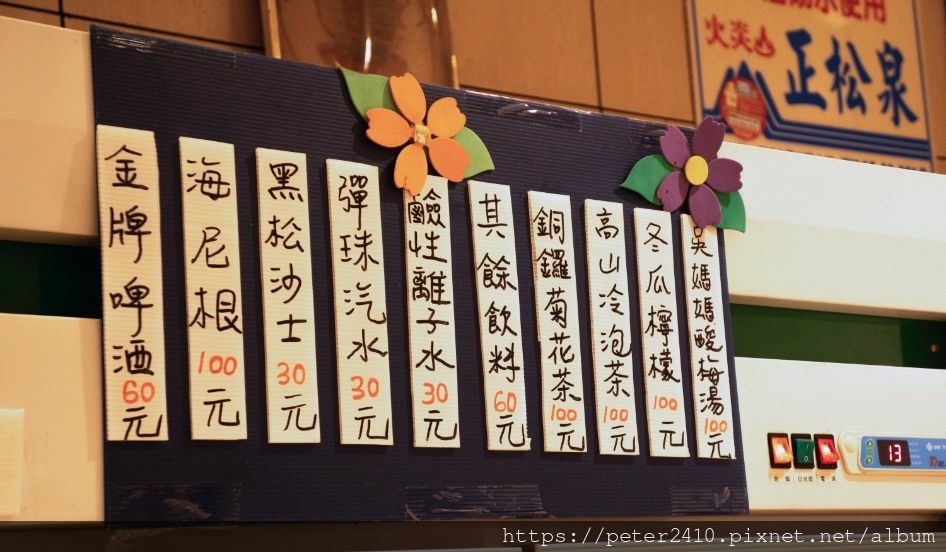 金牌啤酒60元
海尼根100元
黑松沙士30元
彈珠汽水30元
鹼性離子水30元
其餘飲料60元
銅鑼菊花茶100元
高山冷泡茶100元
冬瓜檸檬100元
吳媽媽酸梅湯100元
火炎山
正松泉
13
https://peter2410.pixnet.net/album